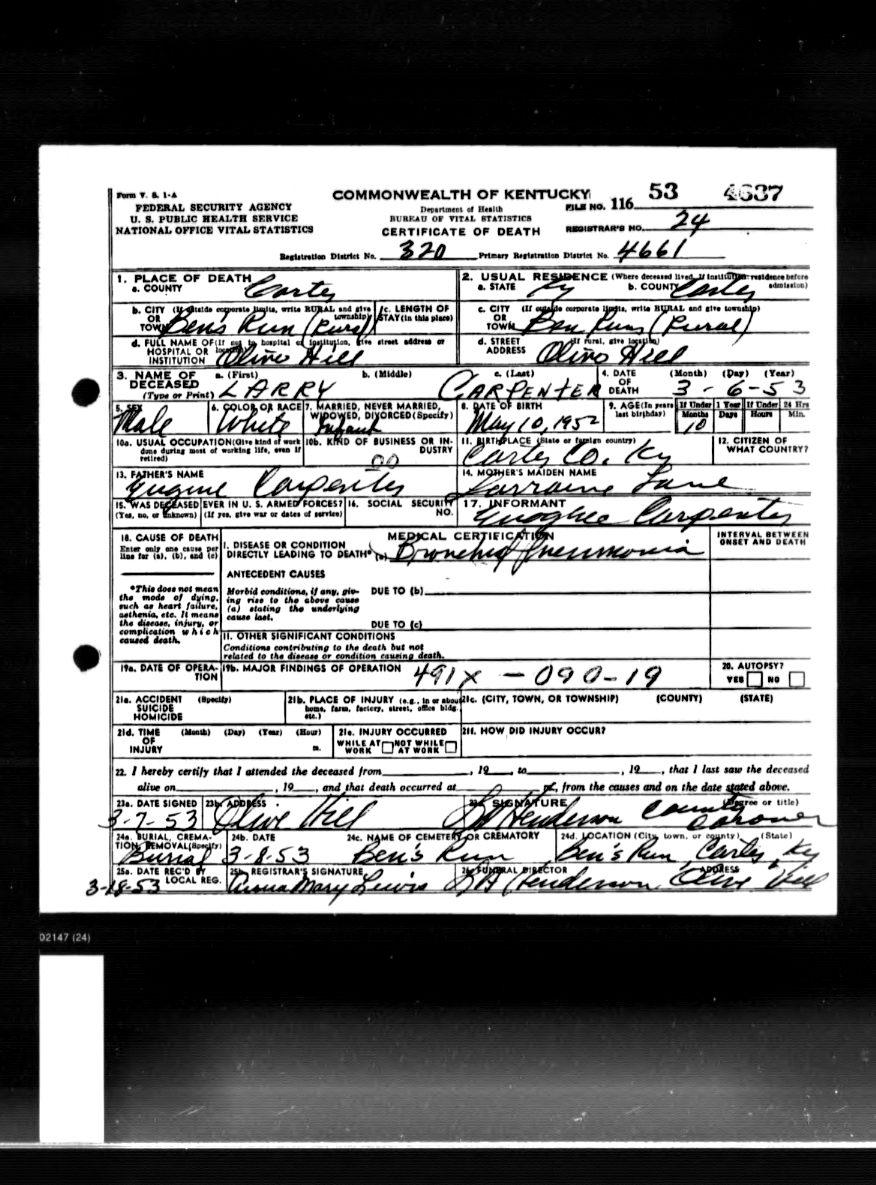 Form V. S. 1-A
FEDERAL SECURITY AGENCY
U. S. PUBLIC HEALTH SERVICE
NATIONAL OFFICE VITAL STATISTICS
COMMONWEALTH OF KENTUCKY
Department of Health
BUREAU OF VITAL STATISTICS
CERTIFICATE OF DEATH
FILE NO. 116 53 4637
REGISTRAR'S NO. 24
Registration District No. 320 Primary Registration District No. 4661
1. PLACE OF DEATH
a. COUNTY Carter
2. USUAL RESIDENCE (Where deceased lived. If institution: residence before admission)
a. STATE Ky b. COUNTY Carter
b. CITY (If outside corporate limits, write RURAL and give township)
OR TOWN Ben's Run (Rural)
c. LENGTH OF STAY (in this place)
c. CITY (If outside corporate limits, write RURAL and give township)
OR TOWN Ben Run (Rural)
d. FULL NAME OF (If not in hospital or institution, give street address or location)
HOSPITAL OR INSTITUTION Olive Hill
d. STREET (If rural, give location)
ADDRESS Olive Hill
3. NAME OF DECEASED (Type or Print)
a. (First) LARRY
b. (Middle)
c. (Last) CARPENTER
4. DATE OF DEATH (Month) (Day) (Year)
3-6-53
5. SEX Male
6. COLOR OR RACE White
7. MARRIED, NEVER MARRIED, WIDOWED, DIVORCED (Specify) Infant
8. DATE OF BIRTH May 10, 1952
9. AGE (In years last birthday) If Under 1 Year Months 10 Days If Under 24 Hrs Hours Min.
10a. USUAL OCCUPATION (Give kind of work done during most of working life, even if retired)
10b. KIND OF BUSINESS OR INDUSTRY 00
11. BIRTHPLACE (State or foreign country) Carter Co. Ky
12. CITIZEN OF WHAT COUNTRY?
13. FATHER'S NAME Eugene Carpenter
14. MOTHER'S MAIDEN NAME Lorraine
15. WAS DECEASED EVER IN U. S. ARMED FORCES? (Yes, no, or unknown) (If yes, give war or dates of service)
16. SOCIAL SECURITY NO.
17. INFORMANT Carpenter
18. CAUSE OF DEATH
Enter only one cause per line for (a), (b), and (c)
*This does not mean the mode of dying, such as heart failure, asthenia, etc. It means the disease, injury, or complication which caused death.
MEDICAL CERTIFICATION
INTERVAL BETWEEN ONSET AND DEATH
I. DISEASE OR CONDITION DIRECTLY LEADING TO DEATH* (a) Bronchial Pneumonia
ANTECEDENT CAUSES
Morbid conditions, if any, giving rise to the above cause (a) stating the underlying cause last.
DUE TO (b)
DUE TO (c)
II. OTHER SIGNIFICANT CONDITIONS
Conditions contributing to the death but not related to the disease or condition causing death.
19a. DATE OF OPERATION
19b. MAJOR FINDINGS OF OPERATION 491X - 090-19
20. AUTOPSY?
YES NO
21a. ACCIDENT (Specify)
SUICIDE
HOMICIDE
21b. PLACE OF INJURY (e.g., in or about home, farm, factory, street, office bldg., etc.)
21c. (CITY, TOWN, OR TOWNSHIP) (COUNTY) (STATE)
21d. TIME OF INJURY (Month) (Day) (Year) (Hour) m.
21e. INJURY OCCURRED
WHILE AT WORK NOT WHILE AT WORK
21f. HOW DID INJURY OCCUR?
22. I hereby certify that I attended the deceased from , 19 , to , 19 , that I last saw the deceased
alive on , 19 , and that death occurred at m., from the causes and on the date stated above.
23a. DATE SIGNED 3-7-53
23b. ADDRESS Olive Hill
23c. SIGNATURE (Degree or title) Henderson County Coroner
24a. BURIAL, CREMATION, REMOVAL (Specify) Burial
24b. DATE 3-8-53
24c. NAME OF CEMETERY OR CREMATORY Ben's Run
24d. LOCATION (City, town, or county) (State) Ben's Run, Carter, Ky
25a. DATE REC'D BY LOCAL REG. 3-18-53
25b. REGISTRAR'S SIGNATURE Anna Mary Lewis
26. FUNERAL DIRECTOR Henderson ADDRESS Olive Hill
02147 (24)